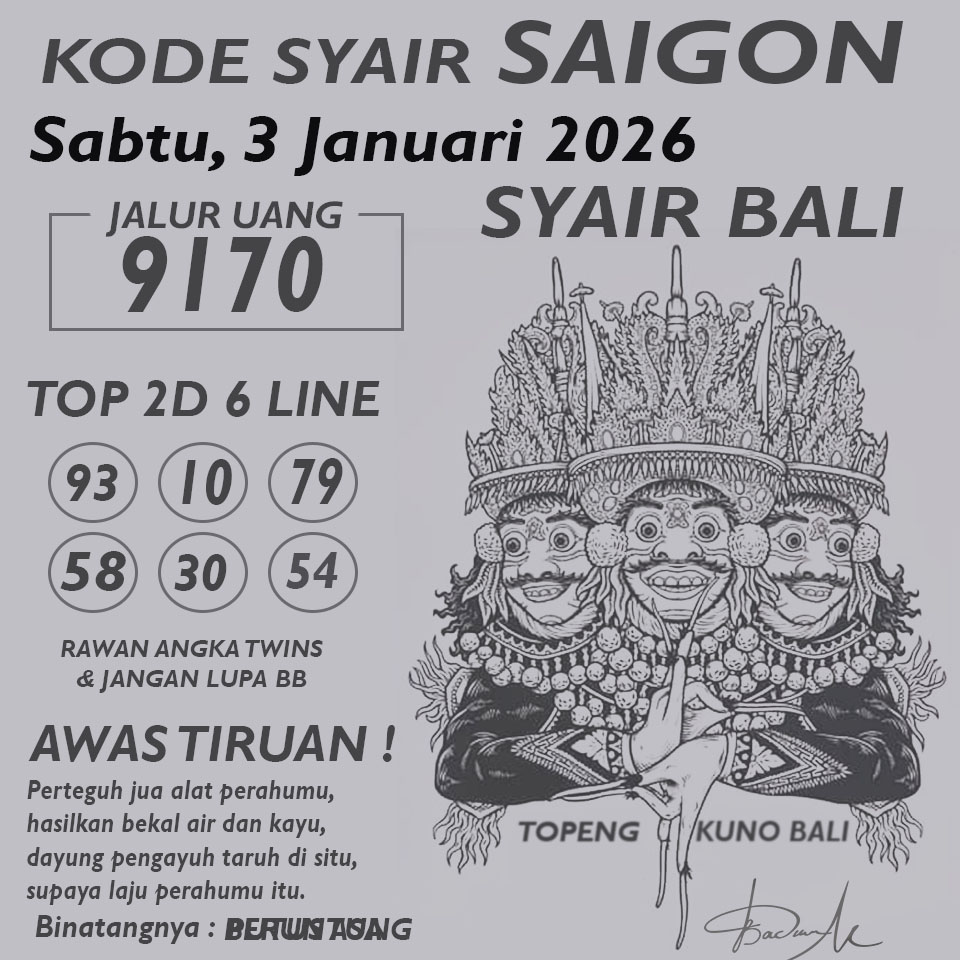 KODE SYAIR SAIGON
Sabtu, 3 Januari 2026
SYAIR BALI
JALUR UANG
9170
TOP 2D 6 LINE
93 10 79
58 30 54
RAWAN ANGKA TWINS
& JANGAN LUPA BB
AWAS TIRUAN !
Perteguh jua alat perahumu,
hasilkan bekal air dan kayu,
dayung pengayuh taruh di situ,
supaya laju perahumu itu.
Binatangnya :
TOPENG KUNO BALI